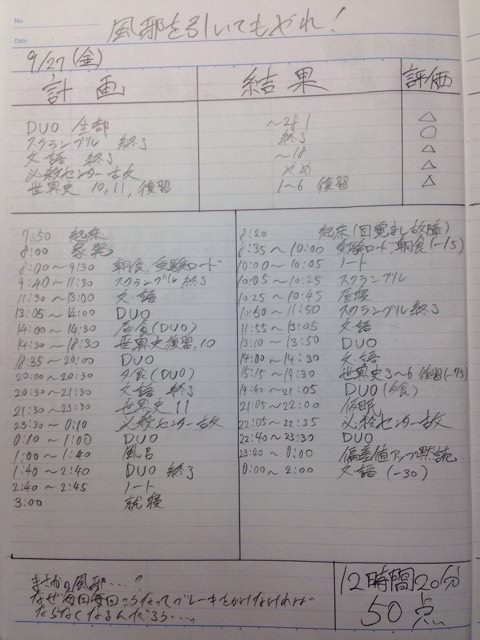 No.
Date
風邪を引いてもやれ!
9/27(金)
計画 結果 評価
DUO 全部 ~28 △
スクランブル 終了 終了 ○
文語 終了 ~18 △
必殺センター古 やめ △
世界史 10,11,復習 1~6 復習 △
7:50 起床
8:00 家発
8:00~9:30 朝食,受験ロード
9:40~11:30 スクランブル 終了
11:30~13:00 文語
13:05~14:00 DUO
14:00~14:30 昼食(DUO)
14:30~18:30 世界史復習,10
18:35~20:00 DUO
20:00~20:30 夕食(DUO)
20:30~21:30 文語 終了
21:30~23:30 世界史 11
23:30~0:10 必殺センター古
0:10~1:00 DUO
1:00~1:40 風呂
1:40~2:40 DUO 終了
2:40~2:45 ノート
3:00 就寝
8:20 起床(目覚まし故障)
8:35~10:00 受験ロード 朝食(-15)
10:00~10:05 ノート
10:05~10:25 スクランブル
10:25~10:45
10:50~11:50 スクランブル終了
11:55~13:05 文語
13:10~13:50 DUO
14:00~14:30 文語
15:15~19:30 世界史3~6 復習
19:40~21:05 DUO(夕食)
21:05~22:00 仮眠
22:05~22:35 必殺センター古
22:40~23:30 DUO
23:40~0:00 偏差値アップ
0:00~2:00 文語(-30)
まさかの風邪…。
なぜ毎回毎回こうなってブレーキをかけなければ
ならなくなるんだろう…。
12時間20分
50点